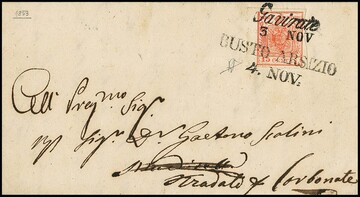 1853
Gavirate
3 NOV
BUSTO ARSIZIO
4. NOV.
15 CENTES
All Preg.mo Sig.r
Sig.r D.r Gaetano Scalini
Tradate p Carbonate